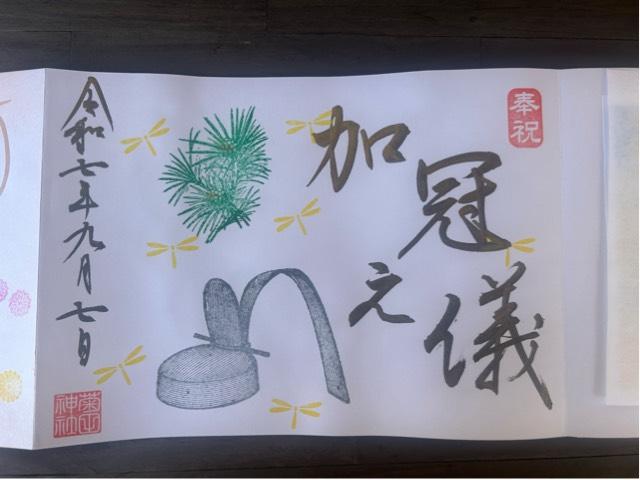 奉祝
加冠之儀
令和七年九月七日
神社